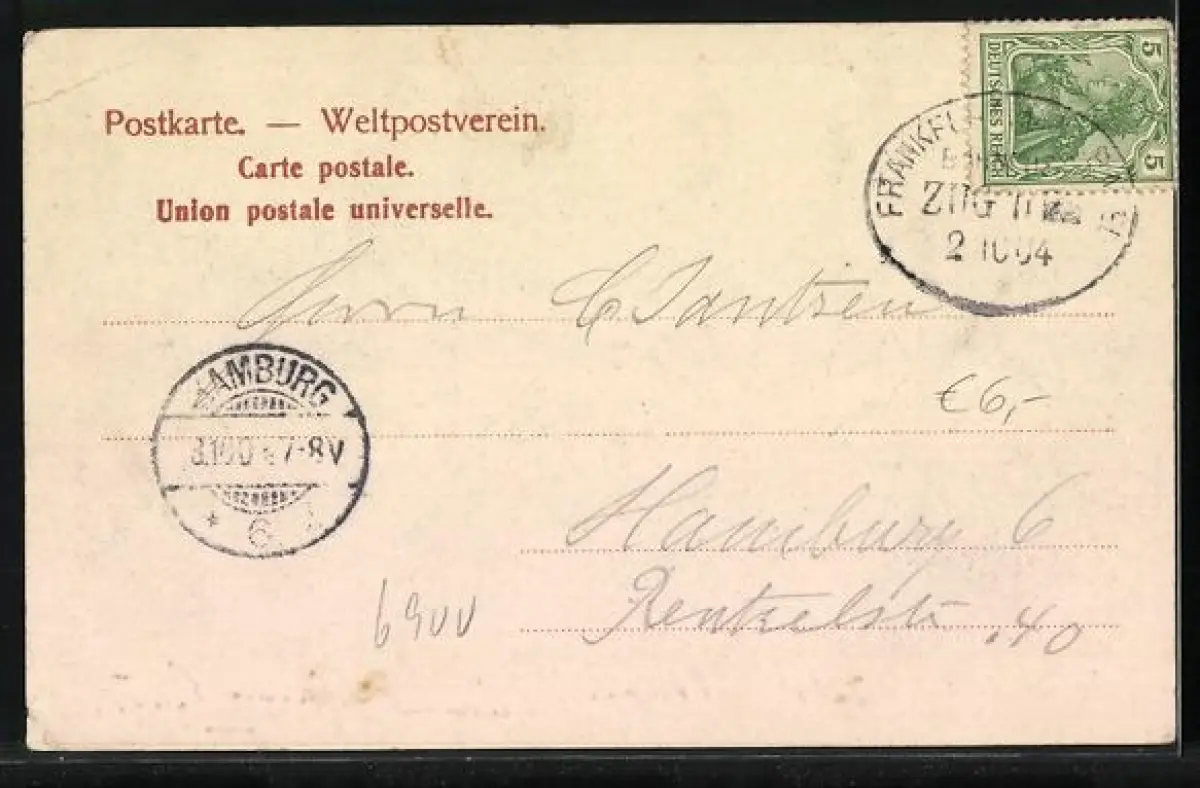 Postkarte. — Weltpostverein.
Carte postale.
Union postale universelle.
5 DEUTSCHES REICH 5
FRANKFU
ZUG
2 10 04
Herrn C Jantzen
HAMBURG
7-8V
* 6
€6,-
Hamburg 6
Rentzelstr. 40
6900